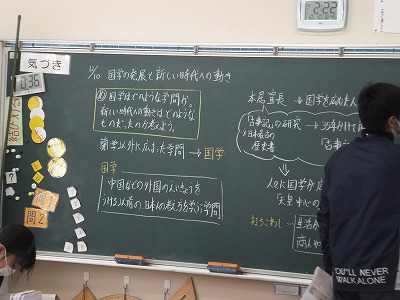 気づき
12/10 国学の発展と新しい時代への動き
め 国学はどのような学問か。
新しい時代への動きはどのような
ものだったのか考えよう。
蘭学以外に広まった学問 → 国学
国学
中国などの外国のえいきょうを
うける以前の日本人の考え方を学ぶ学問
本居宣長 → 国学を広めた人
「古事記」の研究 → 35年かけて
日本最古の
歴史書
「古事
人々に国学が広
天皇中心の
打ちこわし…
生活が
商人や
問1
問2
22:22
YOU'LL NEVER
WALK ALONE